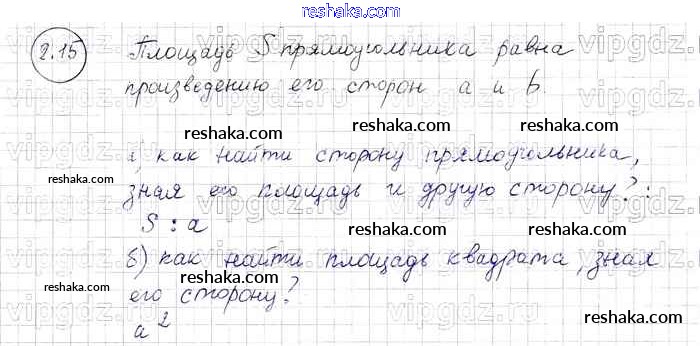 reshaka.com
2.15 Площадь S прямоугольника равна
произведению его сторон a и b.
reshaka.com
reshaka.com
а) как найти сторону прямоугольника,
reshaka.com
зная его площадь и другую сторону?:
reshaka.com
S : a
reshaka.com
б) как найти площадь квадрата, зная
reshaka.com
reshaka.com
его сторону?
reshaka.com
a²
reshaka.com
vipgdz.ru